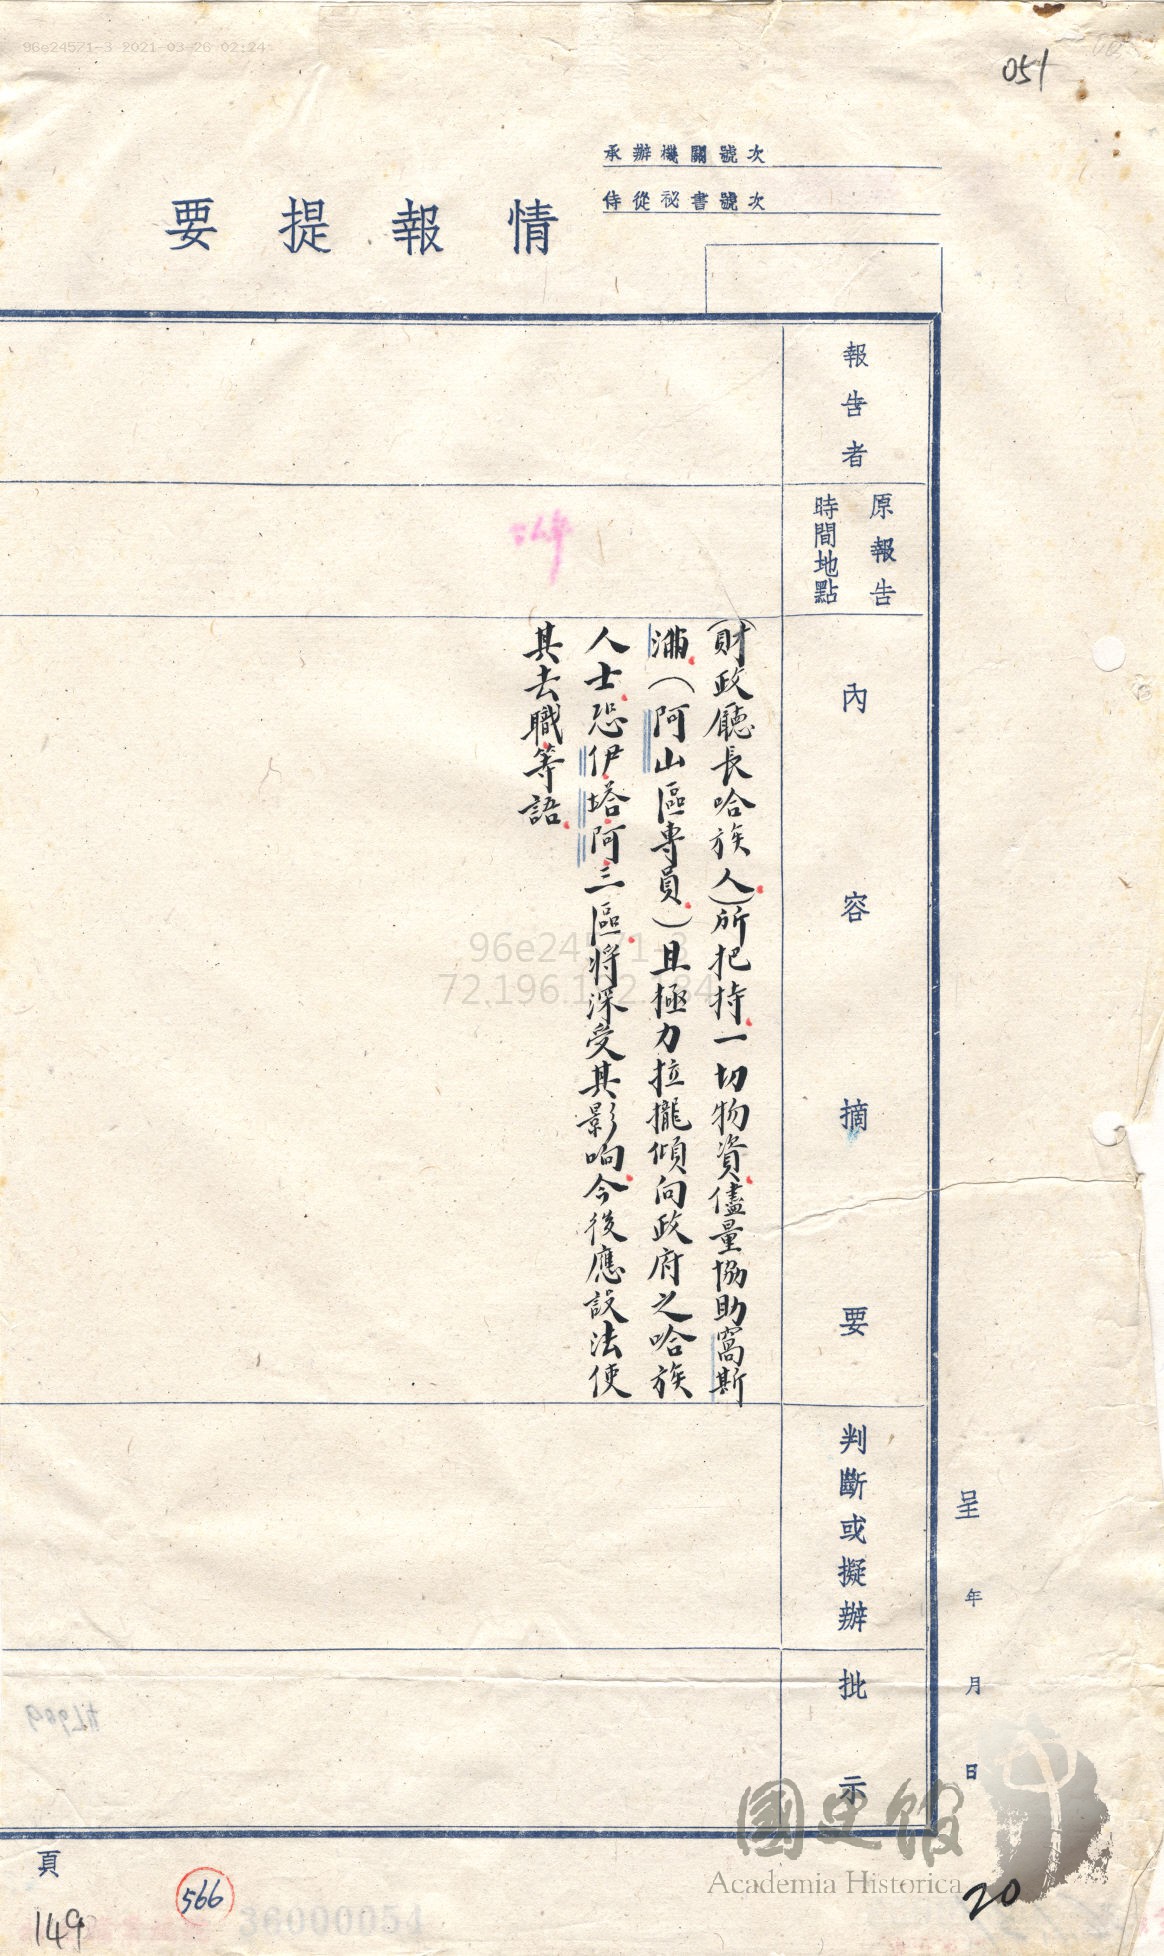 96e24571-3 2021-03-26 02:24
051
承辦機關號次
侍從祕書號次
情報提要
呈 年 月 日
報告者
原報告
時間地點
內容摘要
判斷或擬辦
批示
(財政廳長哈族人)所把持一切物資儘量協助窩斯
滿(阿山區專員)且極力拉攏傾向政府之哈族
人士恐伊塔阿三區將深受其影响今後應設法使
其去職等語
96e24571-3
頁
149
566
36000051
國史館
Academia Historica
20